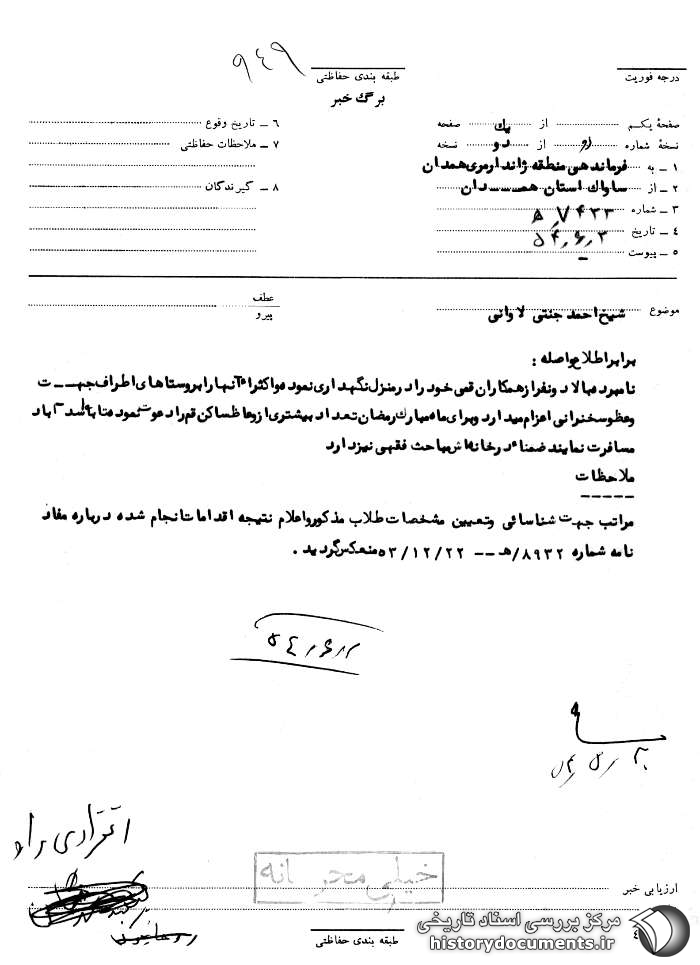 ۹۴۹
درجه فوریت
طبقه بندی حفاظتی
برگ خبر
صفحهٔ یکم از یک صفحه
نسخهٔ شماره از دو نسخه
۱ ــ به فرماندهی منطقه ژاندارمری همدان
۲ ــ از ساواک استان همدان
۳ ــ شماره ۷۴۳۳ / ۵
۴ ــ تاریخ ۵۴٫۶٫۳
۵ ــ پیوست ــ
۶ ــ تاریخ وقوع
۷ ــ ملاحظات حفاظتی
۸ ــ گیرندگان
موضوع شیخ احمد جنتی لاوانی
عطف
پیرو
برابر اطلاع واصله :
نامبرده بالا دو نفر از همکاران قمی خود را در منزل نگهداری نموده و اکثراء آنها را بروستاهای اطراف جهــت
وعظ و سخنرانی اعزام میدارد و برای ماه مبارک رمضان تعداد بیشتری از وعاظ ساکن قم را دعوت نموده تا به اسد آباد
مسافرت نمایند ضمناء در خانه اش مباحث فقهی نیز دارد
ملاحظات
ــــــــــ
مراتب جهت شناسائی و تعیین مشخصات طلاب مذکور و اعلام نتیجه اقدامات انجام شده درباره مفاد
نامه شماره ۸۹۳۲/هـ ــ ۵۳/۱۲/۲۲ منعکس گردید .
خیلی محرمانه
ارزیابی خبر
طبقه بندی حفاظتی
مرکز بررسی اسناد تاریخی
historydocuments.ir